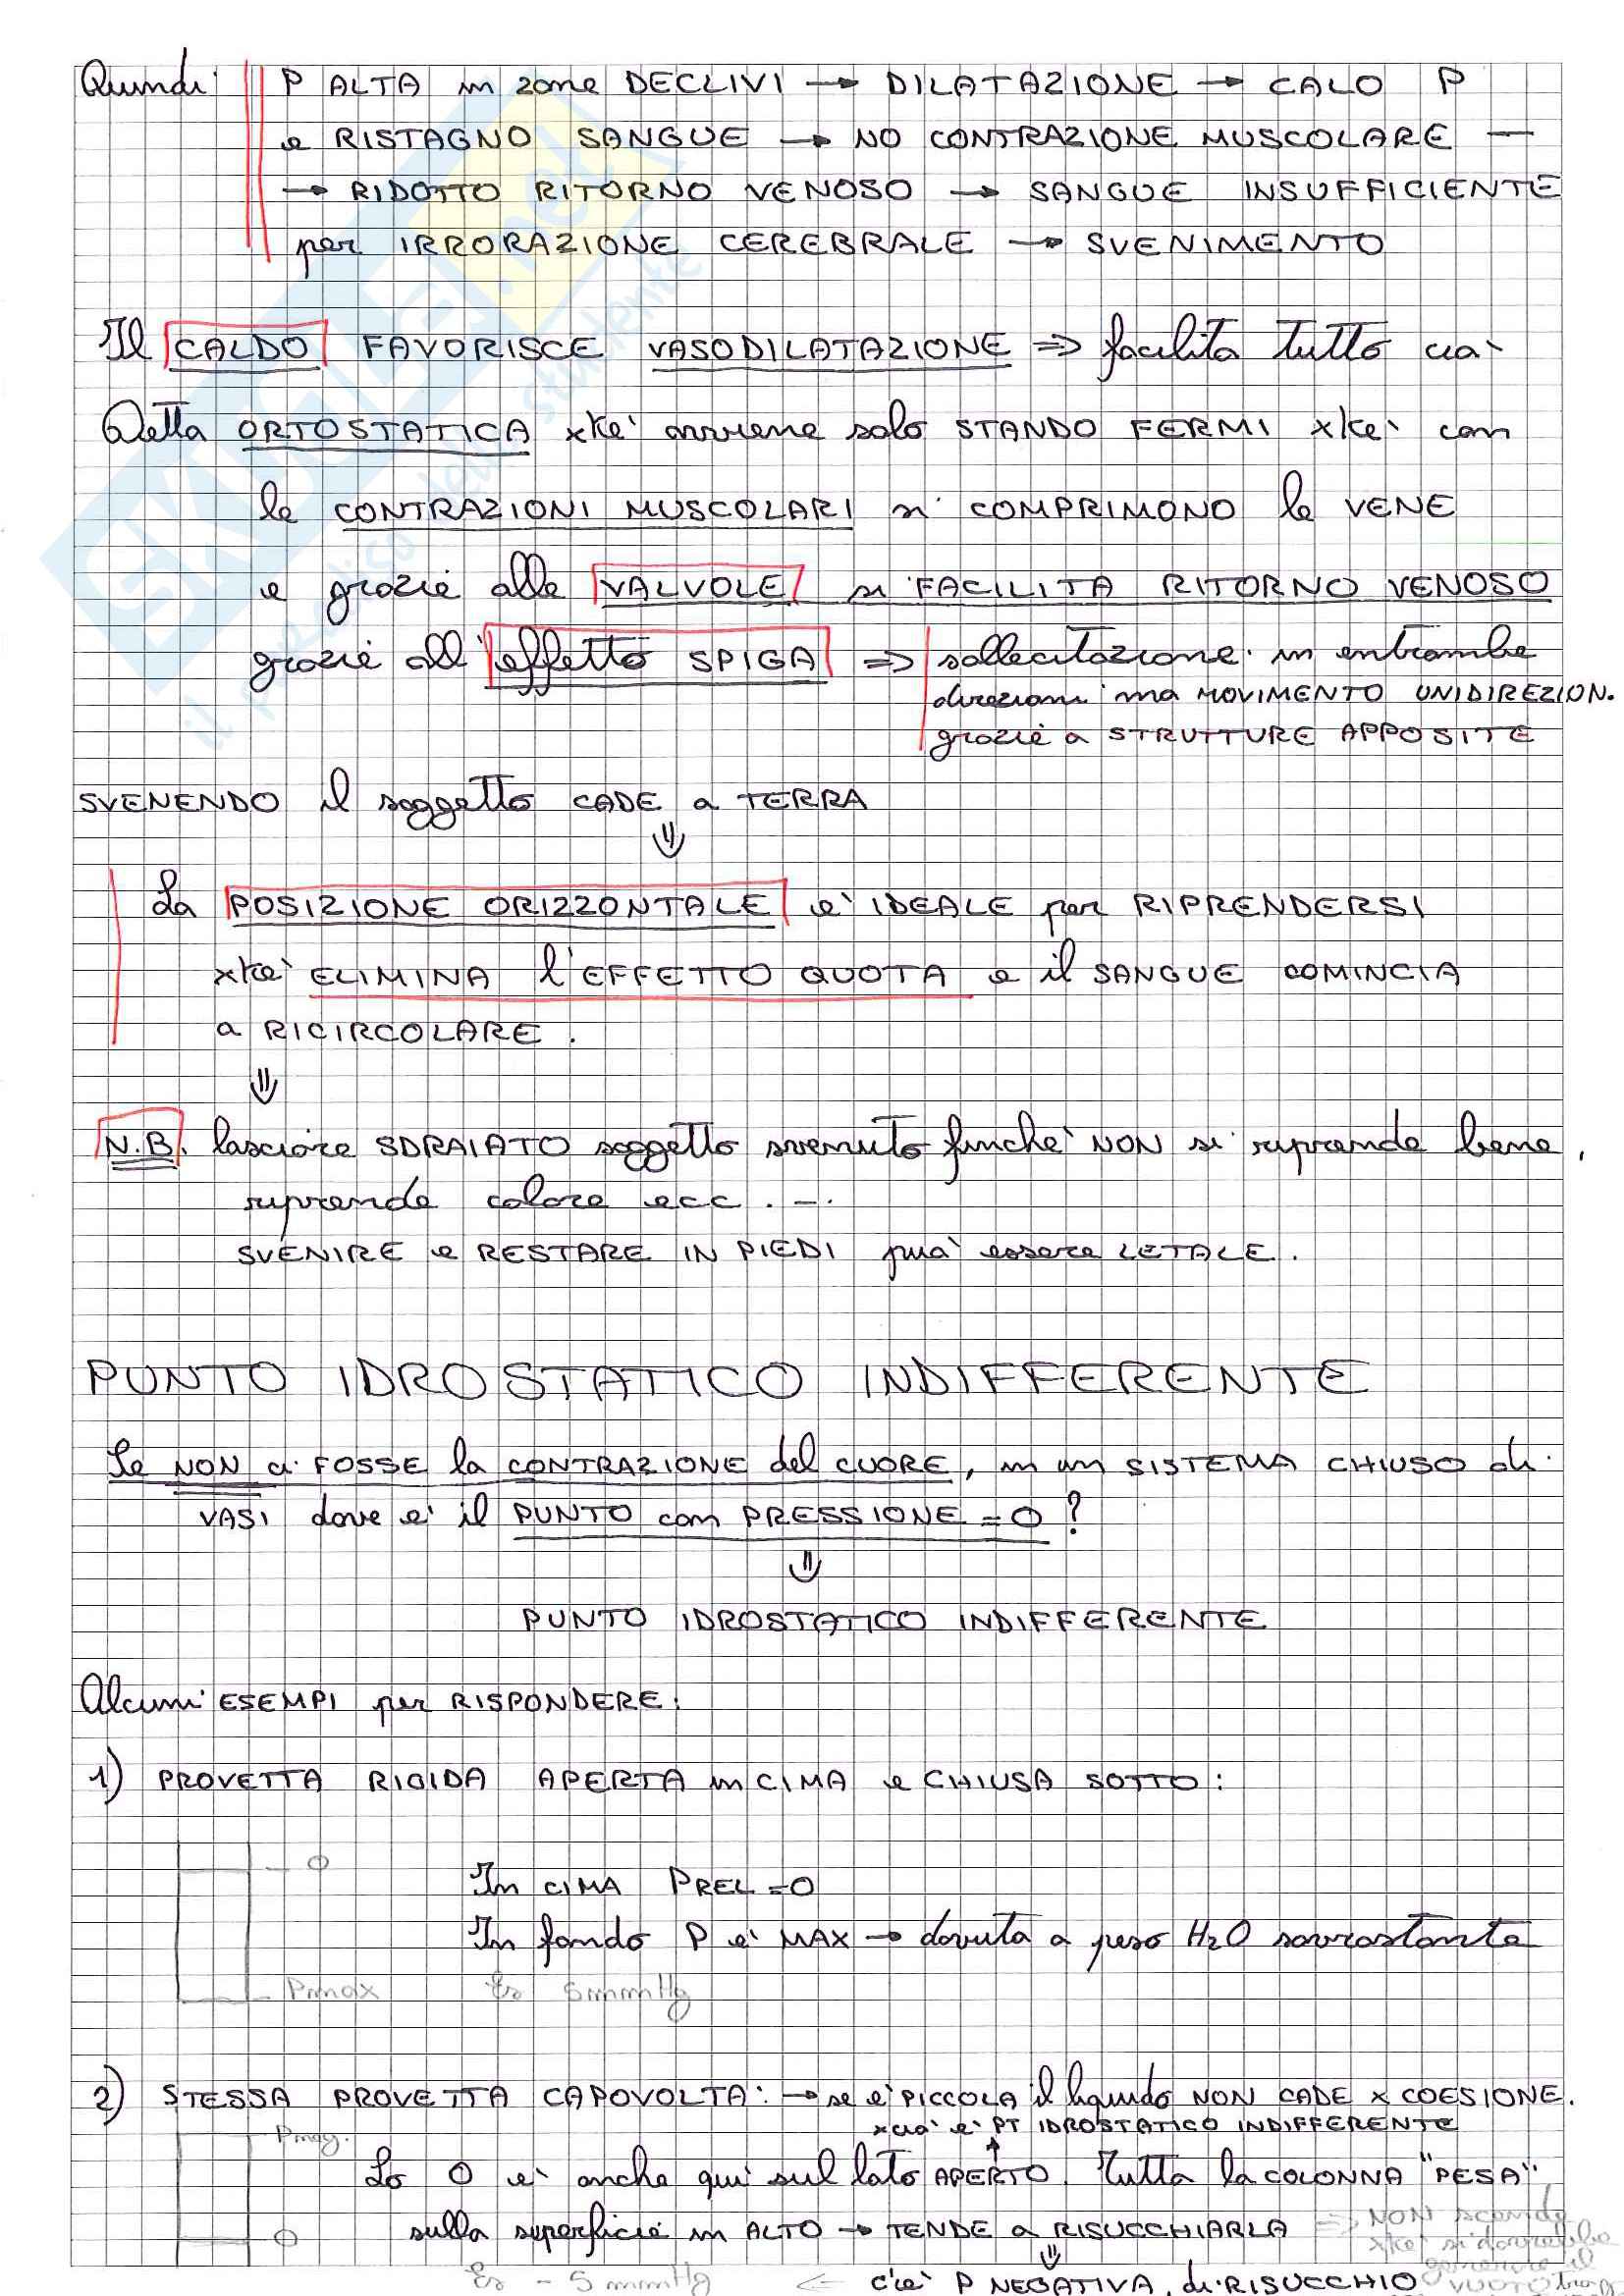 Quindi P ALTA in zone DECLIVI → DILATAZIONE → CALO P
e RISTAGNO SANGUE → NO CONTRAZIONE MUSCOLARE —
→ RIDOTTO RITORNO VENOSO → SANGUE INSUFFICIENTE
per IRRORAZIONE CEREBRALE → SVENIMENTO
Il CALDO FAVORISCE VASODILATAZIONE ⇒ facilita tutto ciò
Detta ORTOSTATICA xké avviene solo STANDO FERMI xké con
le CONTRAZIONI MUSCOLARI si COMPRIMONO le VENE
e grazie alle VALVOLE si FACILITA RITORNO VENOSO
grazie all'effetto SPIGA ⇒ sollecitazione in entrambe
direzioni ma MOVIMENTO UNIDIREZION.
grazie a STRUTTURE APPOSITE
SVENENDO il soggetto CADE a TERRA
⇓
La POSIZIONE ORIZZONTALE è IDEALE per RIPRENDERSI
xké ELIMINA l'EFFETTO QUOTA e il SANGUE COMINCIA
a RICIRCOLARE.
⇓
N.B. lasciare SDRAIATO soggetto svenuto finché NON si riprende bene,
riprende colore ecc...
SVENIRE e RESTARE IN PIEDI può essere LETALE.
PUNTO IDROSTATICO INDIFFERENTE
Se NON ci FOSSE la CONTRAZIONE del CUORE, in un SISTEMA CHIUSO di
VASI dove è il PUNTO con PRESSIONE = 0?
⇓
PUNTO IDROSTATICO INDIFFERENTE
Alcuni ESEMPI per RISPONDERE:
1) PROVETTA RIGIDA APERTA in CIMA e CHIUSA SOTTO:
0
In CIMA PREL = 0
In fondo P è MAX → dovuta a peso H2O sovrastante
Pmax Es 5 mmHg
2) STESSA PROVETTA CAPOVOLTA: → se è PICCOLA il liquido NON CADE x COESIONE.
xciò è PT IDROSTATICO INDIFFERENTE
Pmax.
Lo 0 è anche qui sul lato APERTO. Tutta la COLONNA "PESA"
sulla superficie in ALTO → TENDE a RISUCCHIARLA ⇒ NON scende
0
xké si dovrebbe
generare il
vuoto
⇓
Es - 5 mmHg ← c'è P NEGATIVA, di RISUCCHIO
SKUOLA.net
il paradiso dello studente